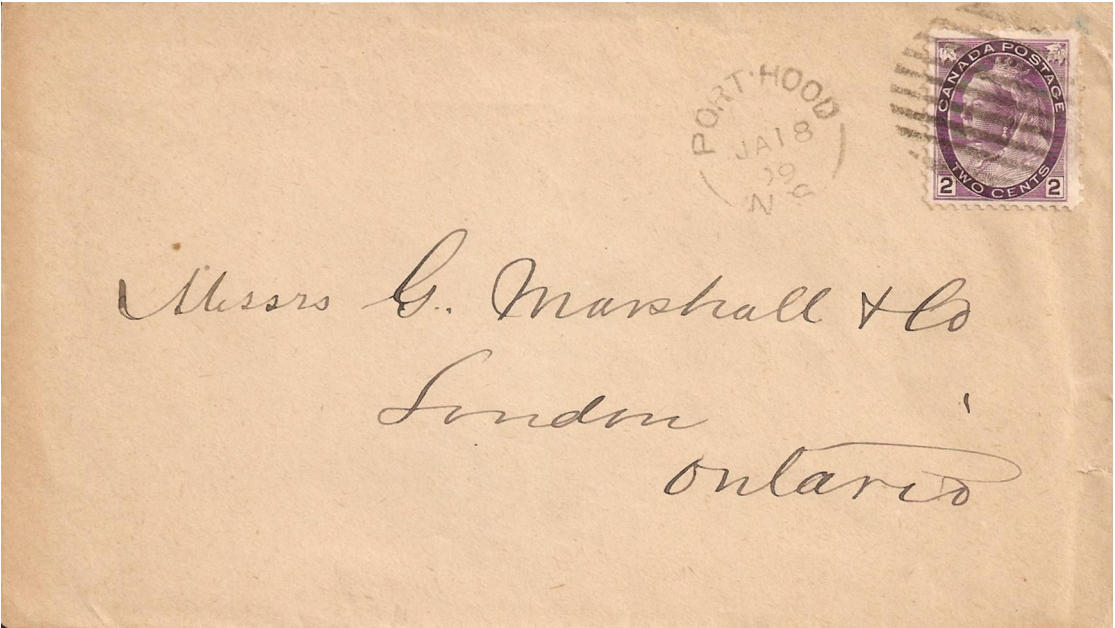 PORT·HOOD
JA 18
99
N S
CANADA POSTAGE
TWO CENTS
2 2
Messrs G. Marshall & Co
London
Ontario